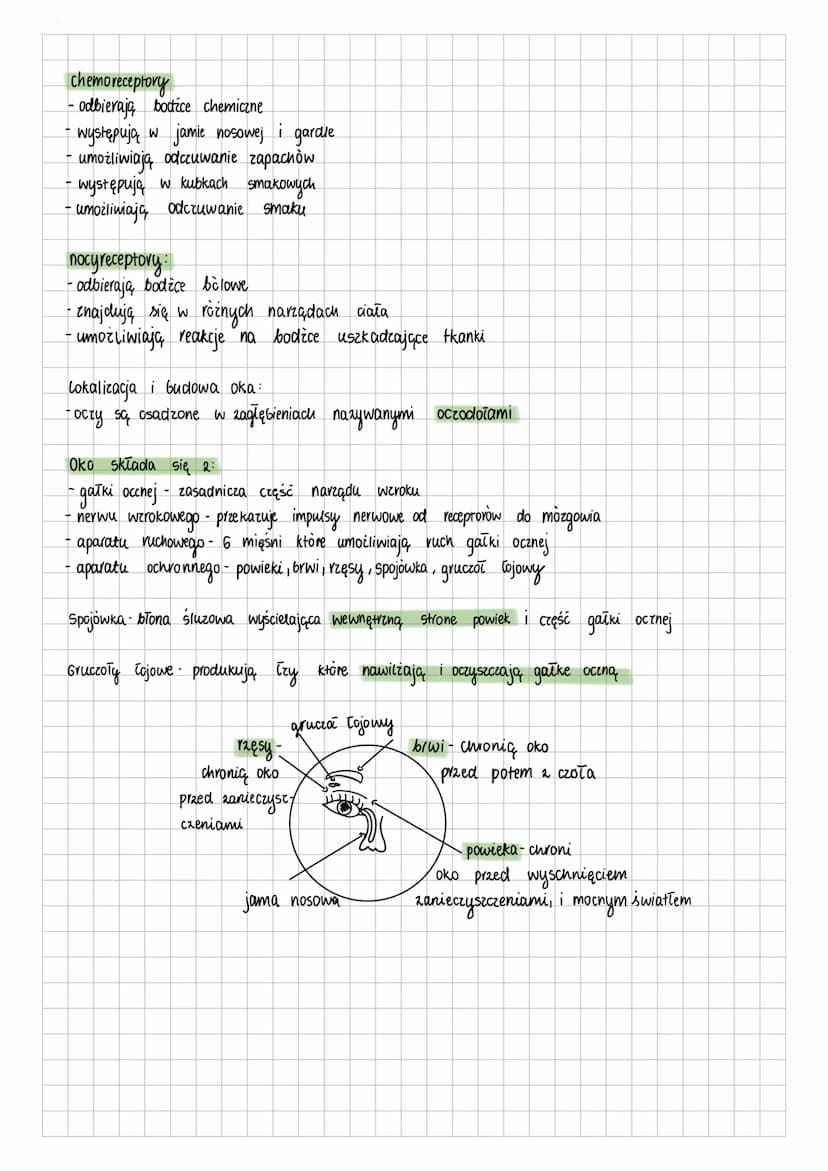 chemoreceptory
- odbierają bodźce chemiczne
- występują w jamie nosowej i gardle
- umożliwiają odczuwanie zapachów
- występują w kubkach smakowych
- umożliwiają odczuwanie smaku
nocyreceptory:
- odbierają bodźce bólowe
- znajdują się w różnych narządach ciała
- umożliwiają reakcje na bodźce uszkadzające tkanki
Lokalizacja i budowa oka:
- oczy są osadzone w zagłębieniach nazywanymi oczodołami
Oko składa się z:
- gałki occnej - zasadnicza część narządu wzroku
- nerwu wzrokowego - przekazuje impulsy nerwowe od receptorów do mózgowia
- aparatu ruchowego - 6 mięśni które umożliwiają ruch gałki ocznej
- aparatu ochronnego - powieki, brwi, rzęsy, spojówka, gruczoł łojowy
Spojówka - błona śluzowa wyścielająca wewnętrzną strone powiek i część gałki ocznej
Gruczoły łojowe - produkują łzy które nawilżają i oczyszczają gałke oczną
gruczoł łojowy
rzęsy -
chronią oko
przed zanieczysz-
czeniami
brwi - chronią oko
przed potem z czoła
powieka - chroni
oko przed wyschnięciem
zanieczyszczeniami, i mocnym światłem
jama nosowa